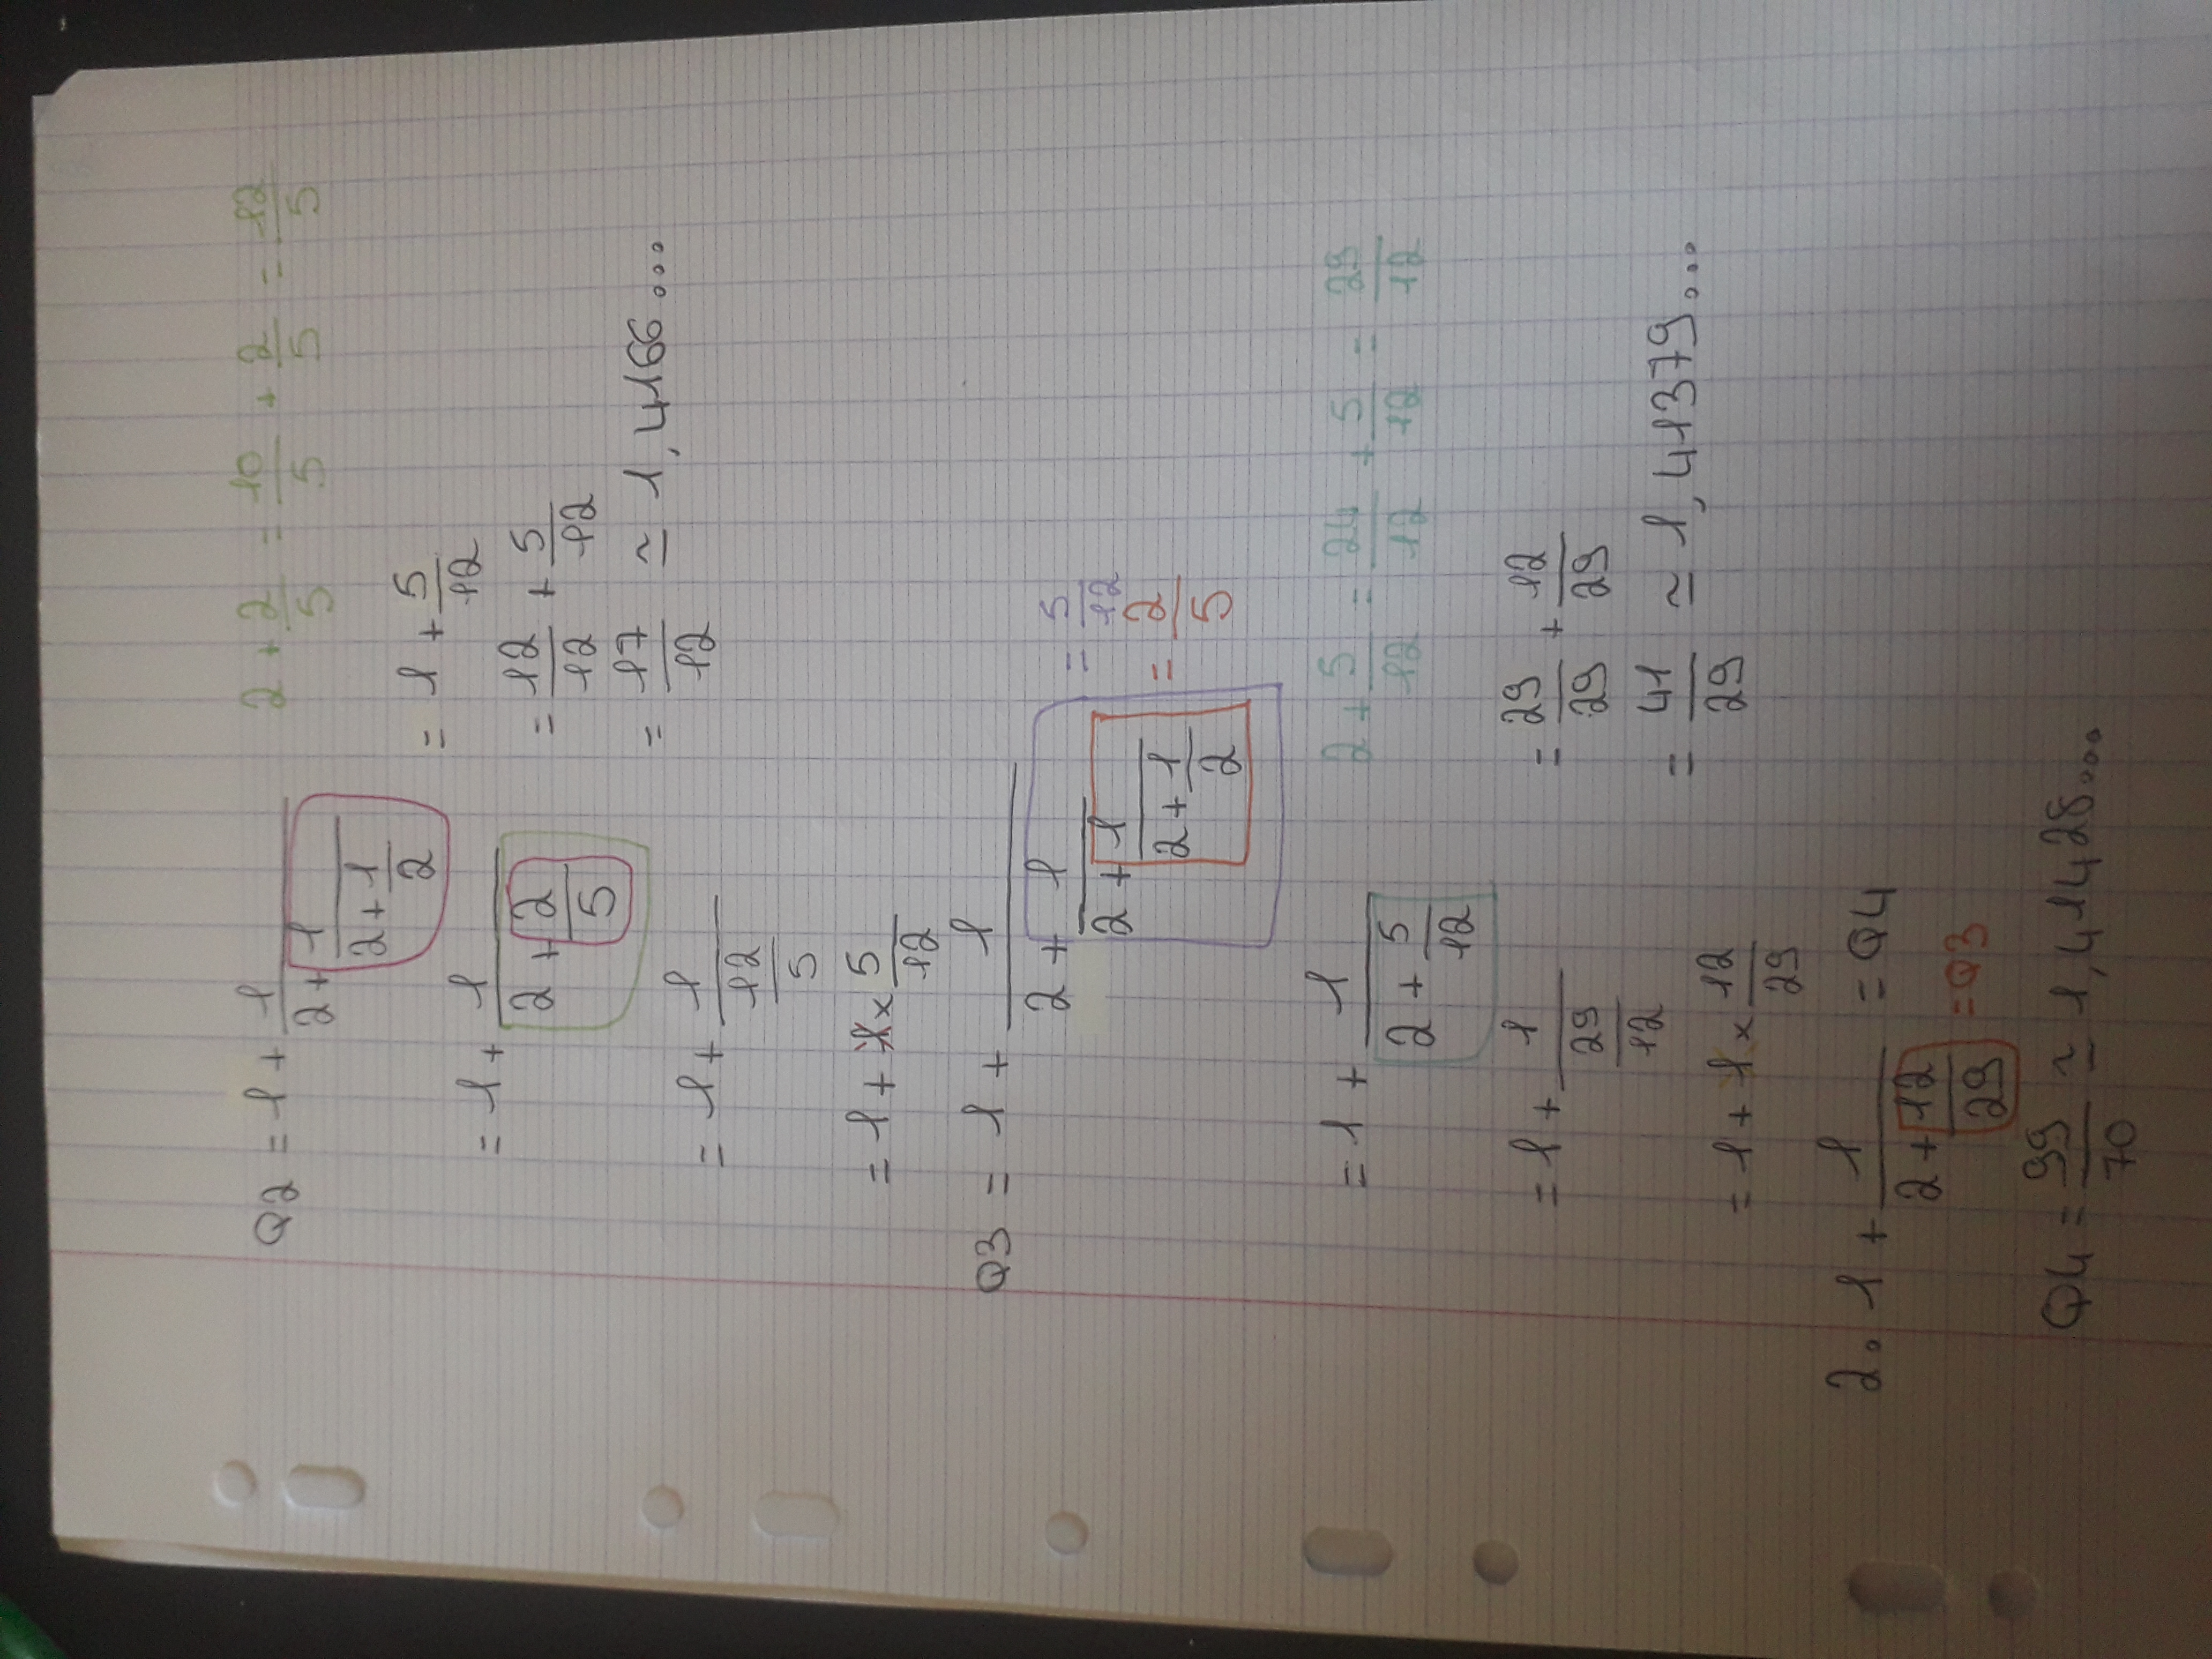 Q2 = 1 + 1/(2 + 1/(2 + 1/2))
2 + 2/5 = 10/5 + 2/5 = 12/5
= 1 + 1/(2 + 2/5)
= 1 + 1/(12/5)
= 1 + 1 × 5/12
= 1 + 5/12
= 12/12 + 5/12
= 17/12 ≃ 1,4166...
Q3 = 1 + 1/(2 + 1/(2 + 1/(2 + 1/2)))
= 5/12
= 2/5
= 1 + 1/(2 + 5/12)
2 + 5/12 = 24/12 + 5/12 = 29/12
= 1 + 1/(29/12)
= 1 + 1 × 12/29
= 29/29 + 12/29
= 41/29 ≃ 1,41379...
2. 1 + 1/(2 + 12/29) = Q4
= Q3
Q4 = 99/70 ≃ 1,41428...